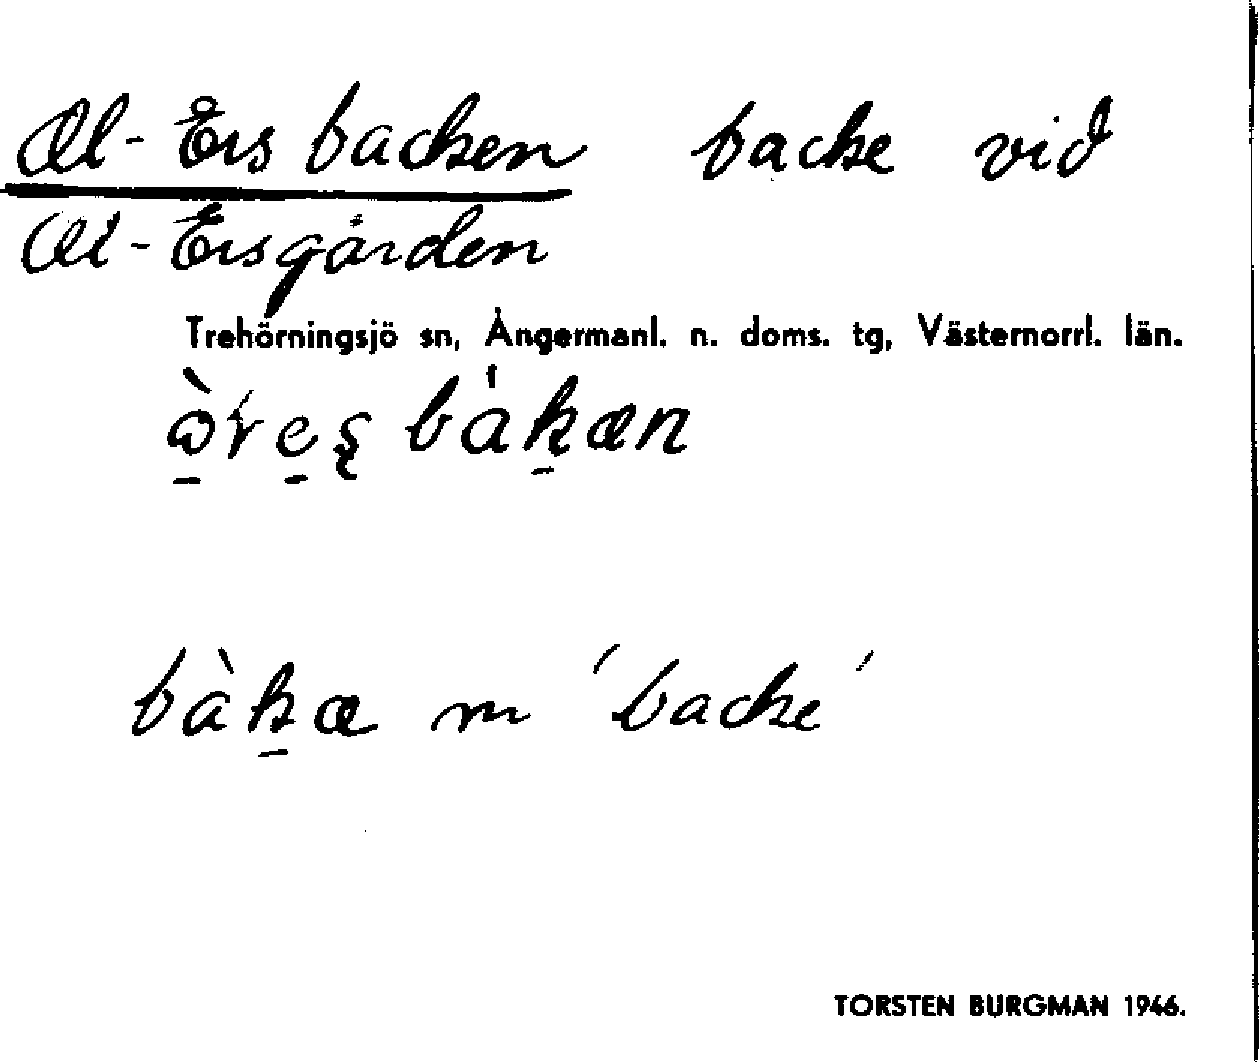 Ol-Ersbacken backe vid
Ol-Ersgården
Trehörningsjö sn, Ångermanl. n. doms. tg, Västernorrl. län.
bàk̠æ m 'backe'
TORSTEN BURGMAN 1946.